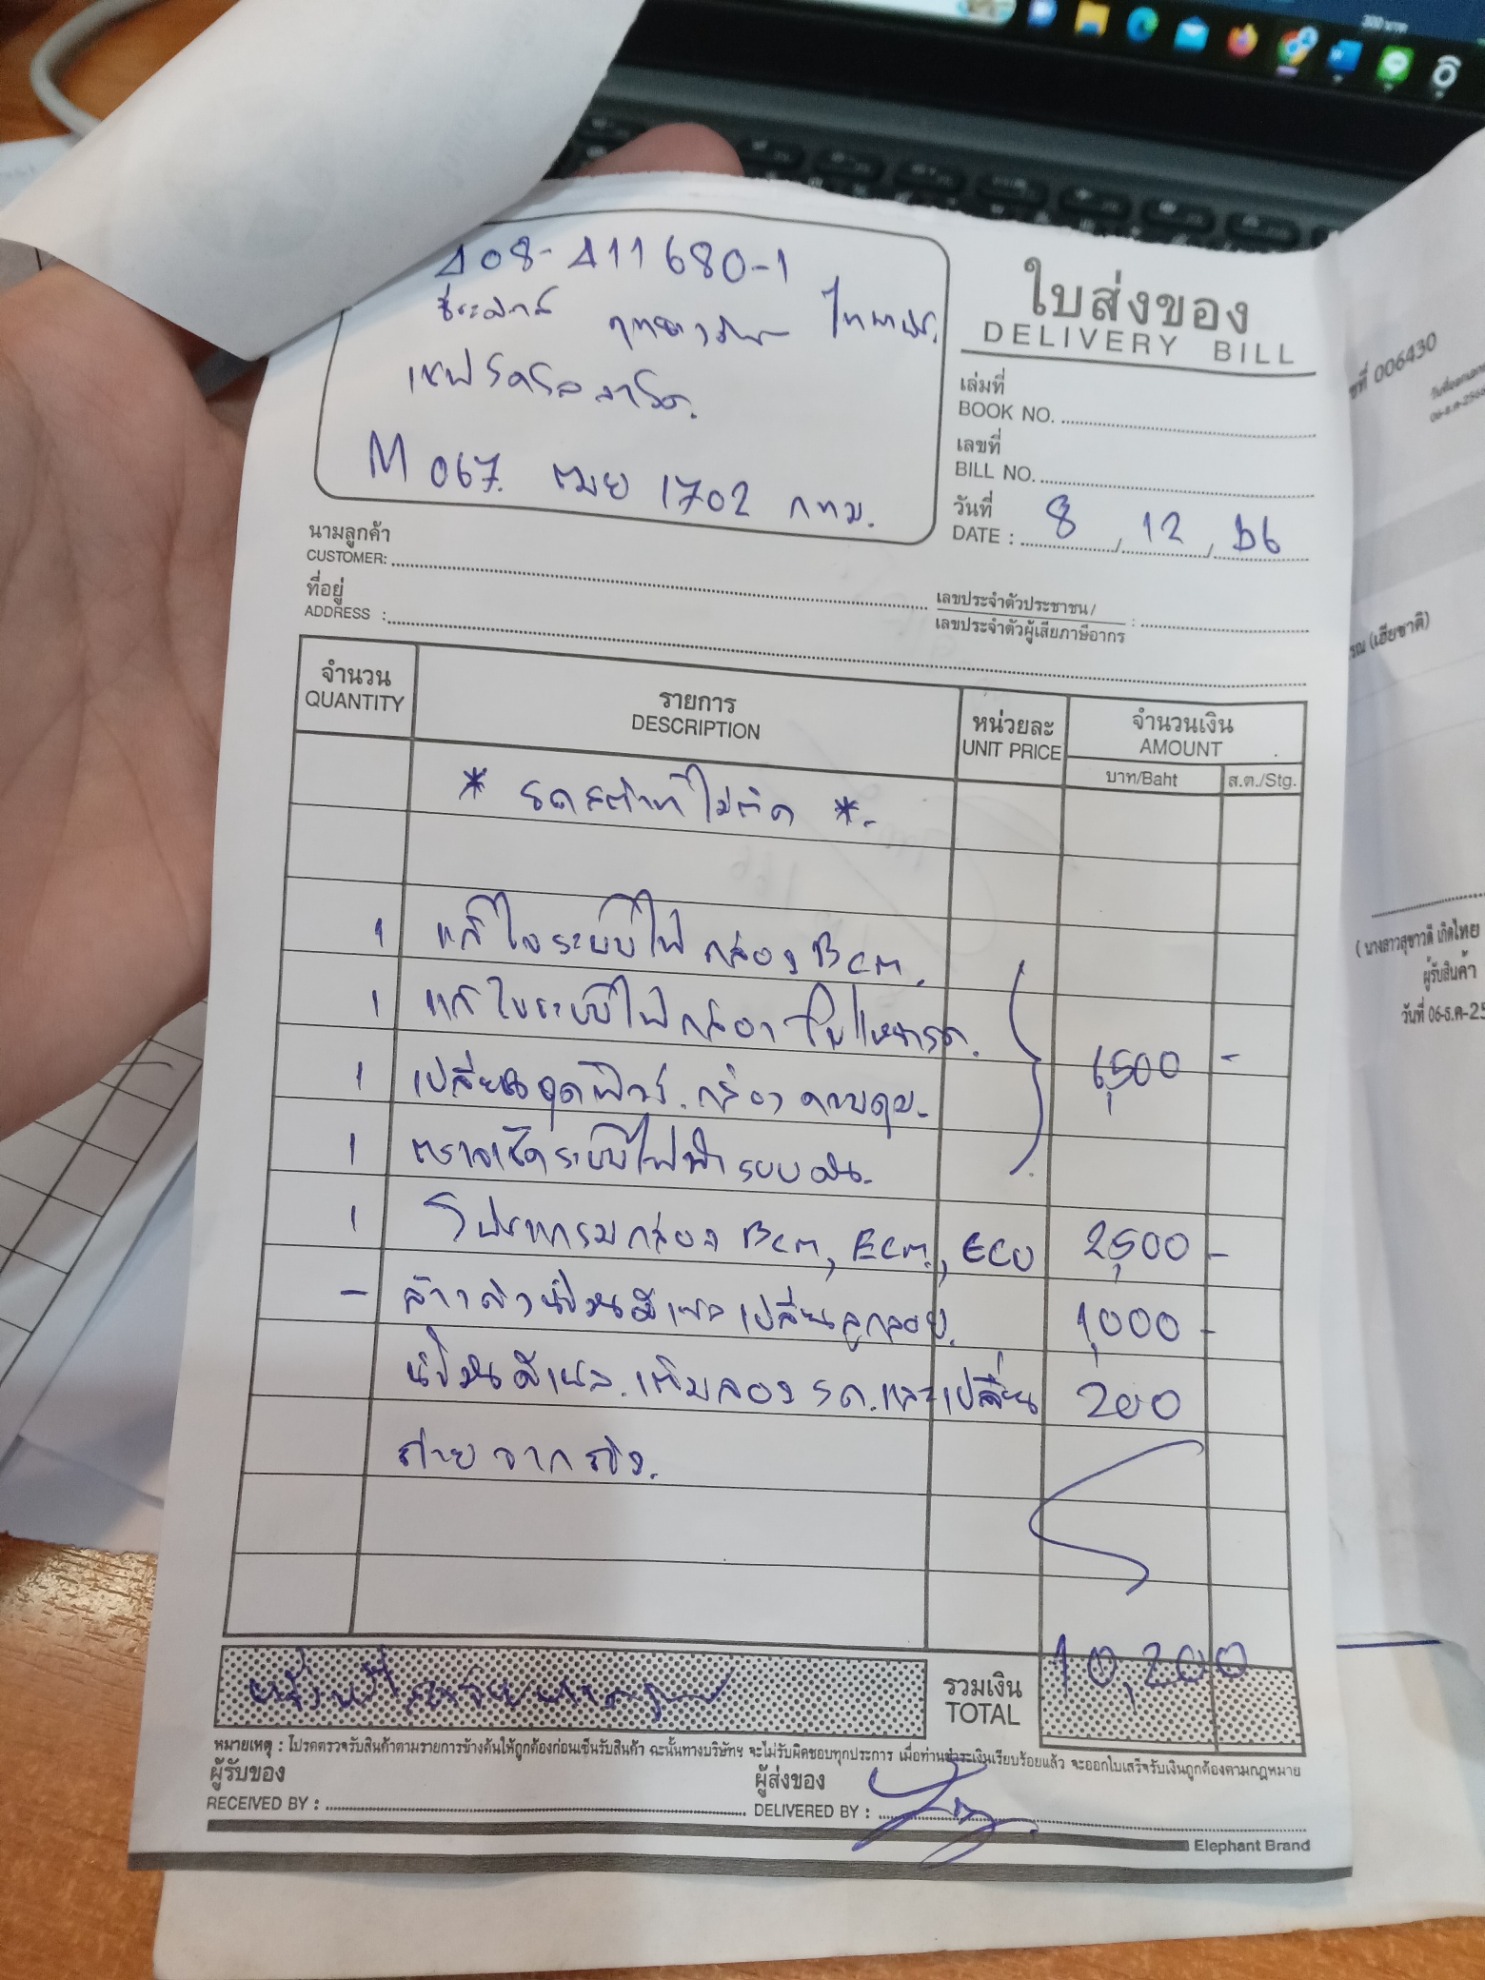 300 บาท
408-411680-1
ไทยพาณิชย์
M 067. ฒย 1702 กทม.
ใบส่งของ
DELIVERY BILL
เล่มที่
BOOK NO.
เลขที่
BILL NO.
วันที่
DATE : 8 / 12 / 66
นามลูกค้า
CUSTOMER:
ที่อยู่
ADDRESS :
เลขประจำตัวประชาชน /
เลขประจำตัวผู้เสียภาษีอากร :
จำนวน รายการ หน่วยละ จำนวนเงิน
QUANTITY DESCRIPTION UNIT PRICE AMOUNT
บาท/Baht ส.ต./Stg.
* รถสตาทไม่ติด *
1 แก้ไขระบบไฟ กล่อง BCM.
1 แก้ไขระบบไฟ กล่อง
1 เปลี่ยนชุดฟิวส์. กล่องควบคุม. 6,500 -
1 ตรวจเช็คระบบไฟฟ้า
1 โปรแกรมกล่อง BCM, ECM, ECU 2,500 -
- ล้างถังน้ำมันดีเซล เปลี่ยนลูกลอย. 1,000 -
น้ำมันดีเซล. เติมลองรถ. และเปลี่ยน 200
ถ่ายจากถัง.
หนึ่งหมื่นสองร้อยบาทถ้วน
รวมเงิน
TOTAL
10,200
หมายเหตุ : โปรดตรวจรับสินค้าตามรายการข้างต้นให้ถูกต้องก่อนเซ็นรับสินค้า ฉะนั้นทางบริษัทฯ จะไม่รับผิดชอบทุกประการ เมื่อท่านชำระเงินเรียบร้อยแล้ว จะออกใบเสร็จรับเงินถูกต้องตามกฎหมาย
ผู้รับของ
RECEIVED BY :
ผู้ส่งของ
DELIVERED BY :
Elephant Brand
006430
วันที่ออกเอกสาร
06-ธ.ค-2566
(เฮียชาติ)
( นางสาวสุชาวดี เกิดไทย
ผู้รับสินค้า
วันที่ 06-ธ.ค-25